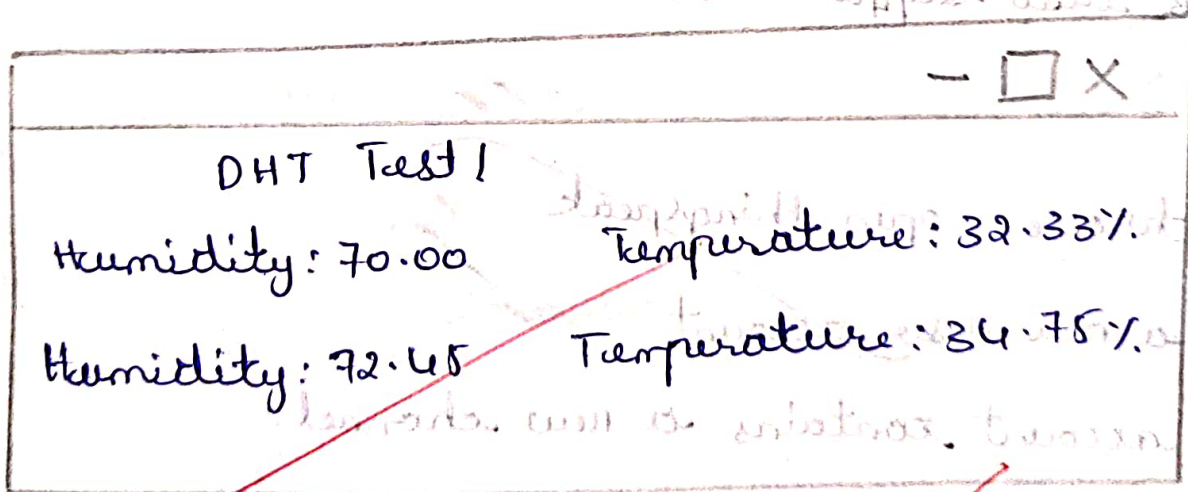 DHT Test!
Humidity: 70.00 Temperature: 32.33%
Humidity: 72.45 Temperature: 34.75%